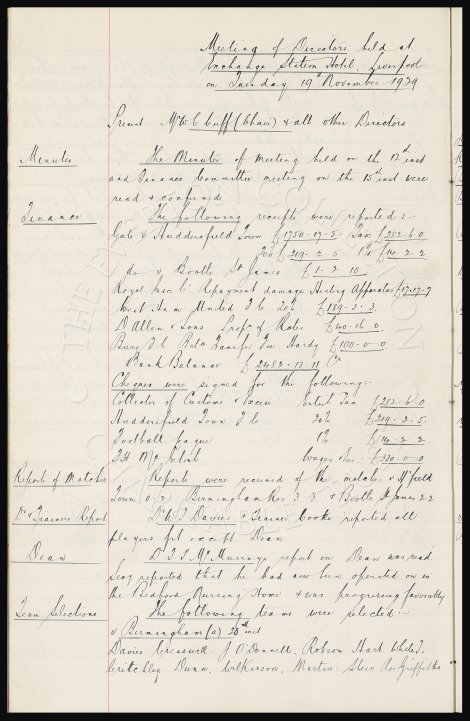 Meeting of Directors held at
Exchange Station Hotel, Liverpool
on Tuesday 19th November 1929
Present Mr W C Cuff (Chair) & all other Directors
Minutes
The Minutes of meeting held on the 12th inst
and Finance Committee meeting on the 15th inst were
read & confirmed
Finance
The following receipts were reported :-
Gate v Huddersfield Town £1750-17-5. Tax £282.6.0
20% £219-2-5 1% £14-2-2
do v Bootle St James £1-2-10
Royal Insce Co Repayment damage Heating Apparatus £17-17-7
West Ham United F C 20% £189-3-3
D Allen & Sons Propn of Rates £40-16-0
Bury F C Baln Transfer Fee Hardy £100-0-0
Bank Balance £2482-13-11 Cr
Cheques were signed for the following:-
Collector of Customs & Excise Entert Tax £282-6-0
Huddersfield Town F C 20% £219-2-5
Football League 1% £14-2-2
T H McIntosh Wages £330-0-0
Report of Matches
Reports were received of the matches v H'field
Town 0.2 Birmingham Res 3-3 & Bootle St James 2.2
Dr & Trainers Report
Dr W J Davies & Trainer Cooke reported all
players fit except Dean
Dean
Dr J S McMurray's report on Dean was read
Secy reported that he had now been operated on in
the Nursing Home & was progressing favorably
Team Selections
The following teams were selected:-
v Birmingham (a) 23rd inst
Davies. Cresswell. J O'Donnell. Robson Hart White J.
Critchley Dunn. Wilkinson. Martin. Stein Res Griffiths